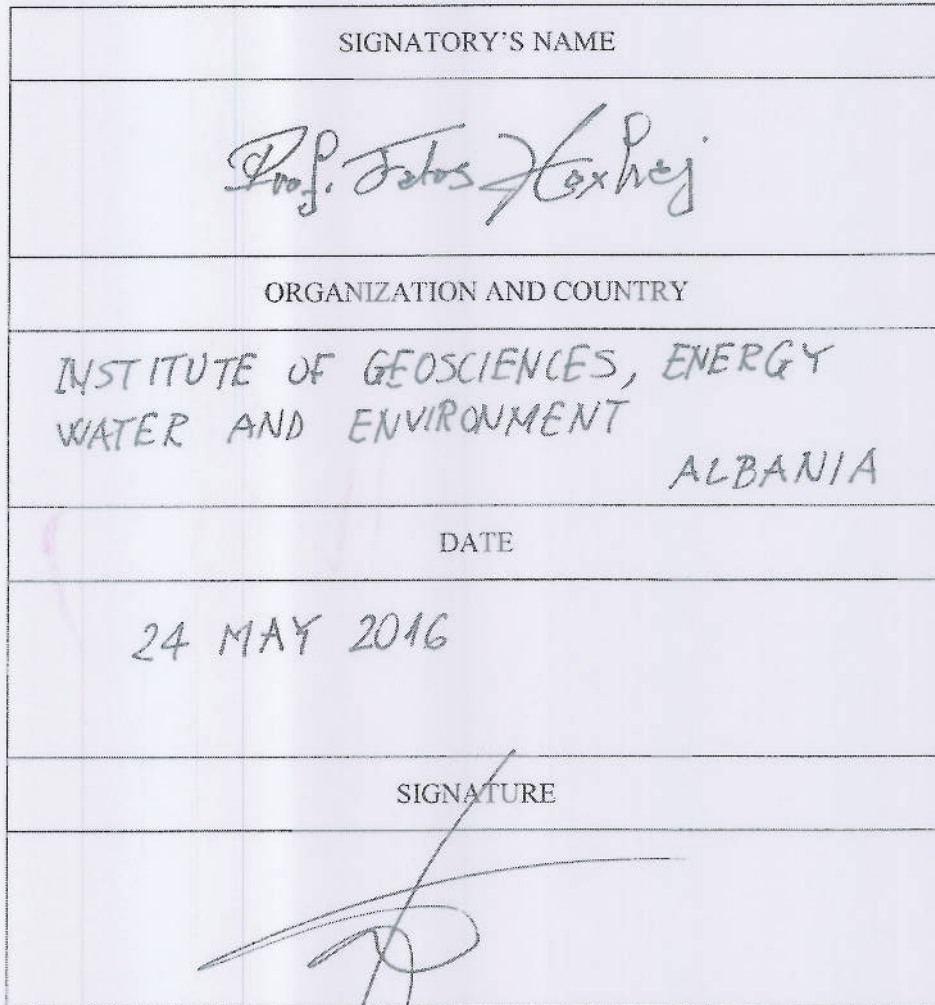 SIGNATORY'S NAME
Prof. Fatos Hoxhaj
ORGANIZATION AND COUNTRY
INSTITUTE OF GEOSCIENCES, ENERGY
WATER AND ENVIRONMENT
ALBANIA
DATE
24 MAY 2016
SIGNATURE